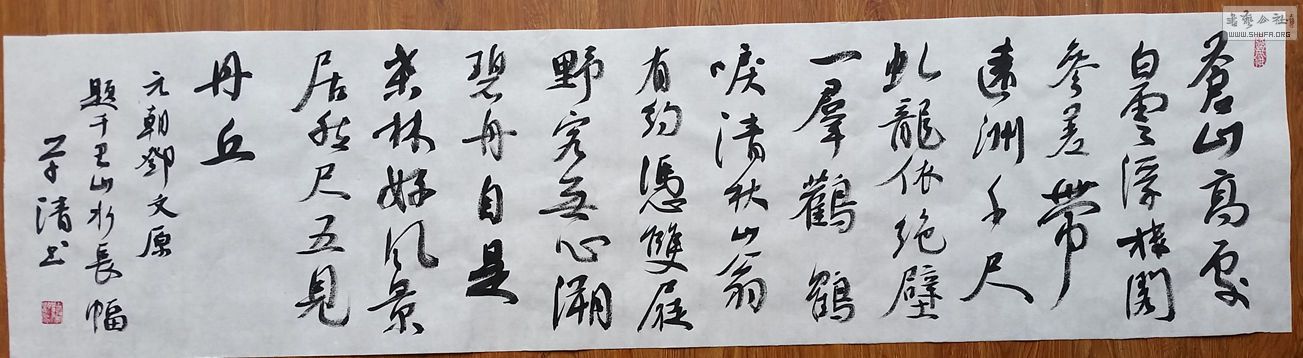 蒼山高處
白雲浮樓閣
參差帶
遠洲千尺
虬龍依絕壁
一羣鸛鶴
唳清秋山翁
有約憑雙屐
野客無心溯
碧舟自是
林好風景
居然尺五見
丹丘
元朝鄧文原
題千里山水長幅
清书
書藝公社
WWW.SHUFA.ORG